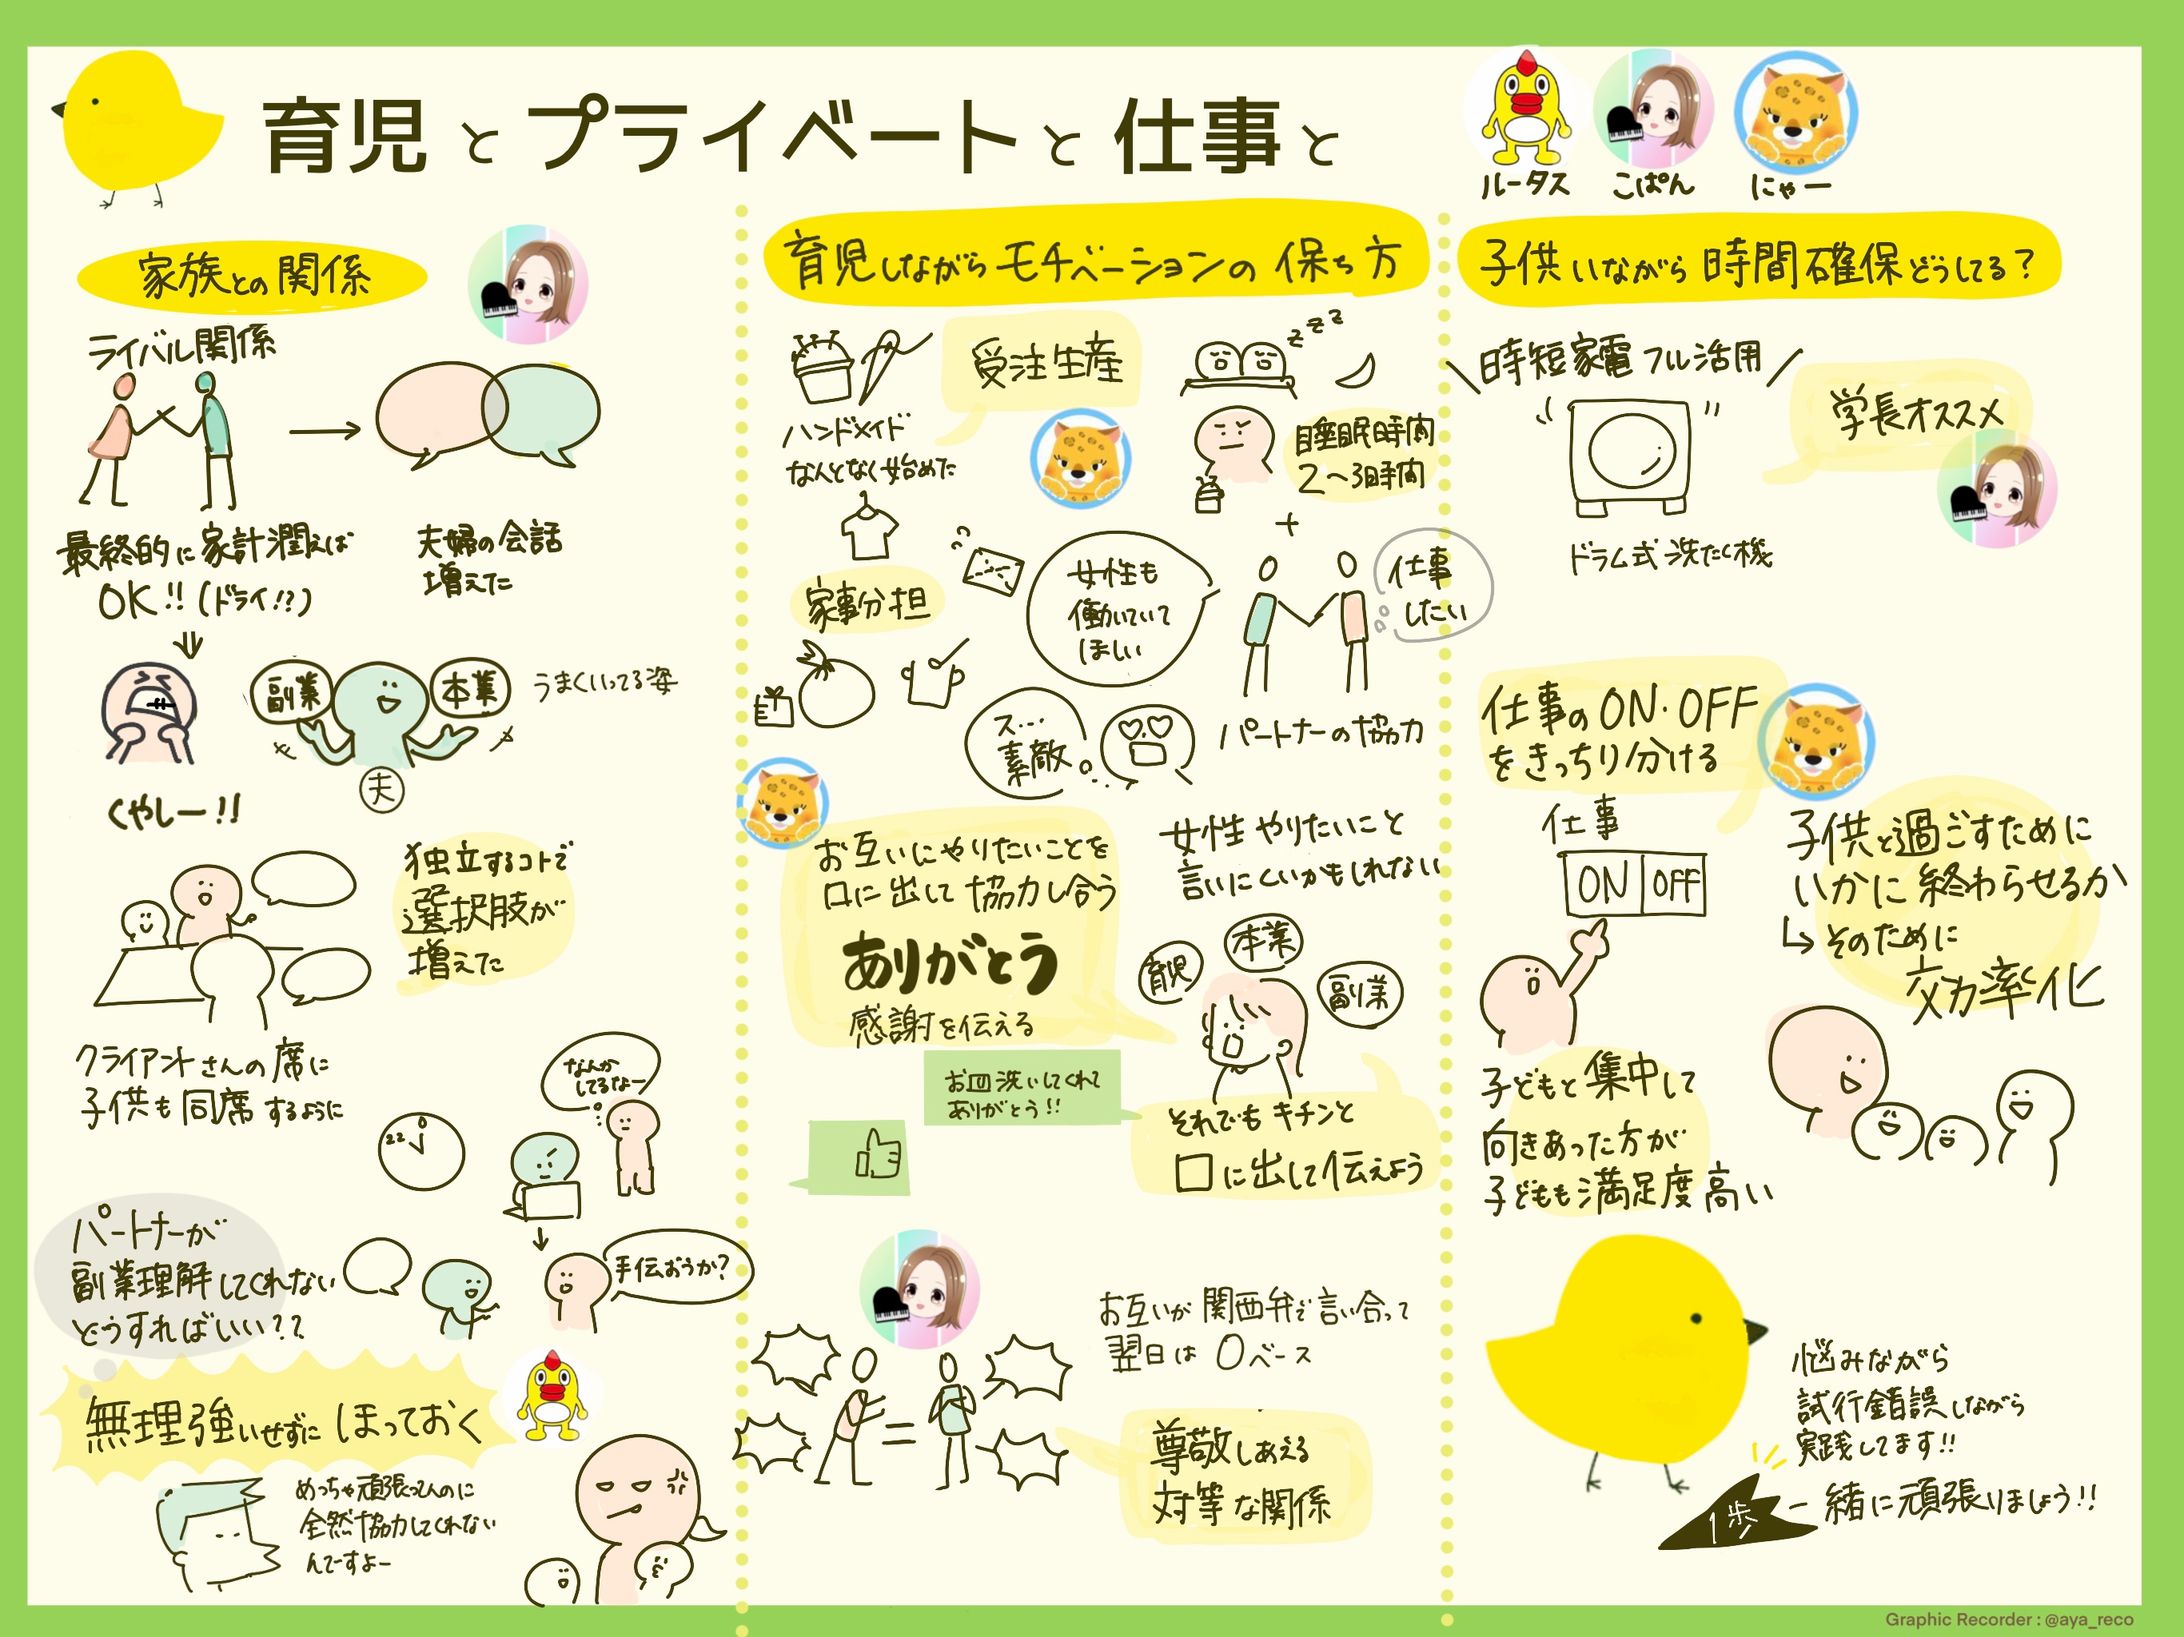 育児とプライベートと仕事と
ルータス
こぱん
にゃー
家族との関係
ライバル関係
最終的に家計潤えば
OK!!(ドライ!?)
夫婦の会話
増えた
くやしー!!
副業
本業
夫
うまくいってる姿
独立するコトで
選択肢が
増えた
クライアントさんの席に
子供も同席するように
22
0
なんか
してるなー
手伝おうか?
パートナーが
副業理解してくれない
どうすればいい??
無理強いせずにほっておく
めっちゃ頑張ってんのに
全然協力してくれない
んですよー
育児しながらモチベーションの保ち方
ハンドメイド
なんとなく始めた
受注生産
zzz
睡眠時間
2〜3時間
+
家事分担
女性も
働いていて
ほしい
仕事
したい
パートナーの協力
ス…
素敵
お互いにやりたいことを
口に出して協力し合う
ありがとう
感謝を伝える
お皿洗いしてくれて
ありがとう!!
女性やりたいこと
言いにくいかもしれない
育児
本業
副業
それでもキチンと
口に出して伝えよう
お互いが関西弁で言い合って
翌日は0ベース
=
尊敬しあえる
対等な関係
子供いながら時間確保どうしてる?
時短家電フル活用
学長オススメ
ドラム式洗たく機
仕事のON・OFF
をきっちり分ける
仕事
ON OFF
子供と過ごすために
いかに終わらせるか
↳そのために
効率化
子どもと集中して
向きあった方が
子どもも満足度高い
悩みながら
試行錯誤しながら
実践してます!!
1歩
一緒に頑張りましょう!!
Graphic Recorder : @aya_reco